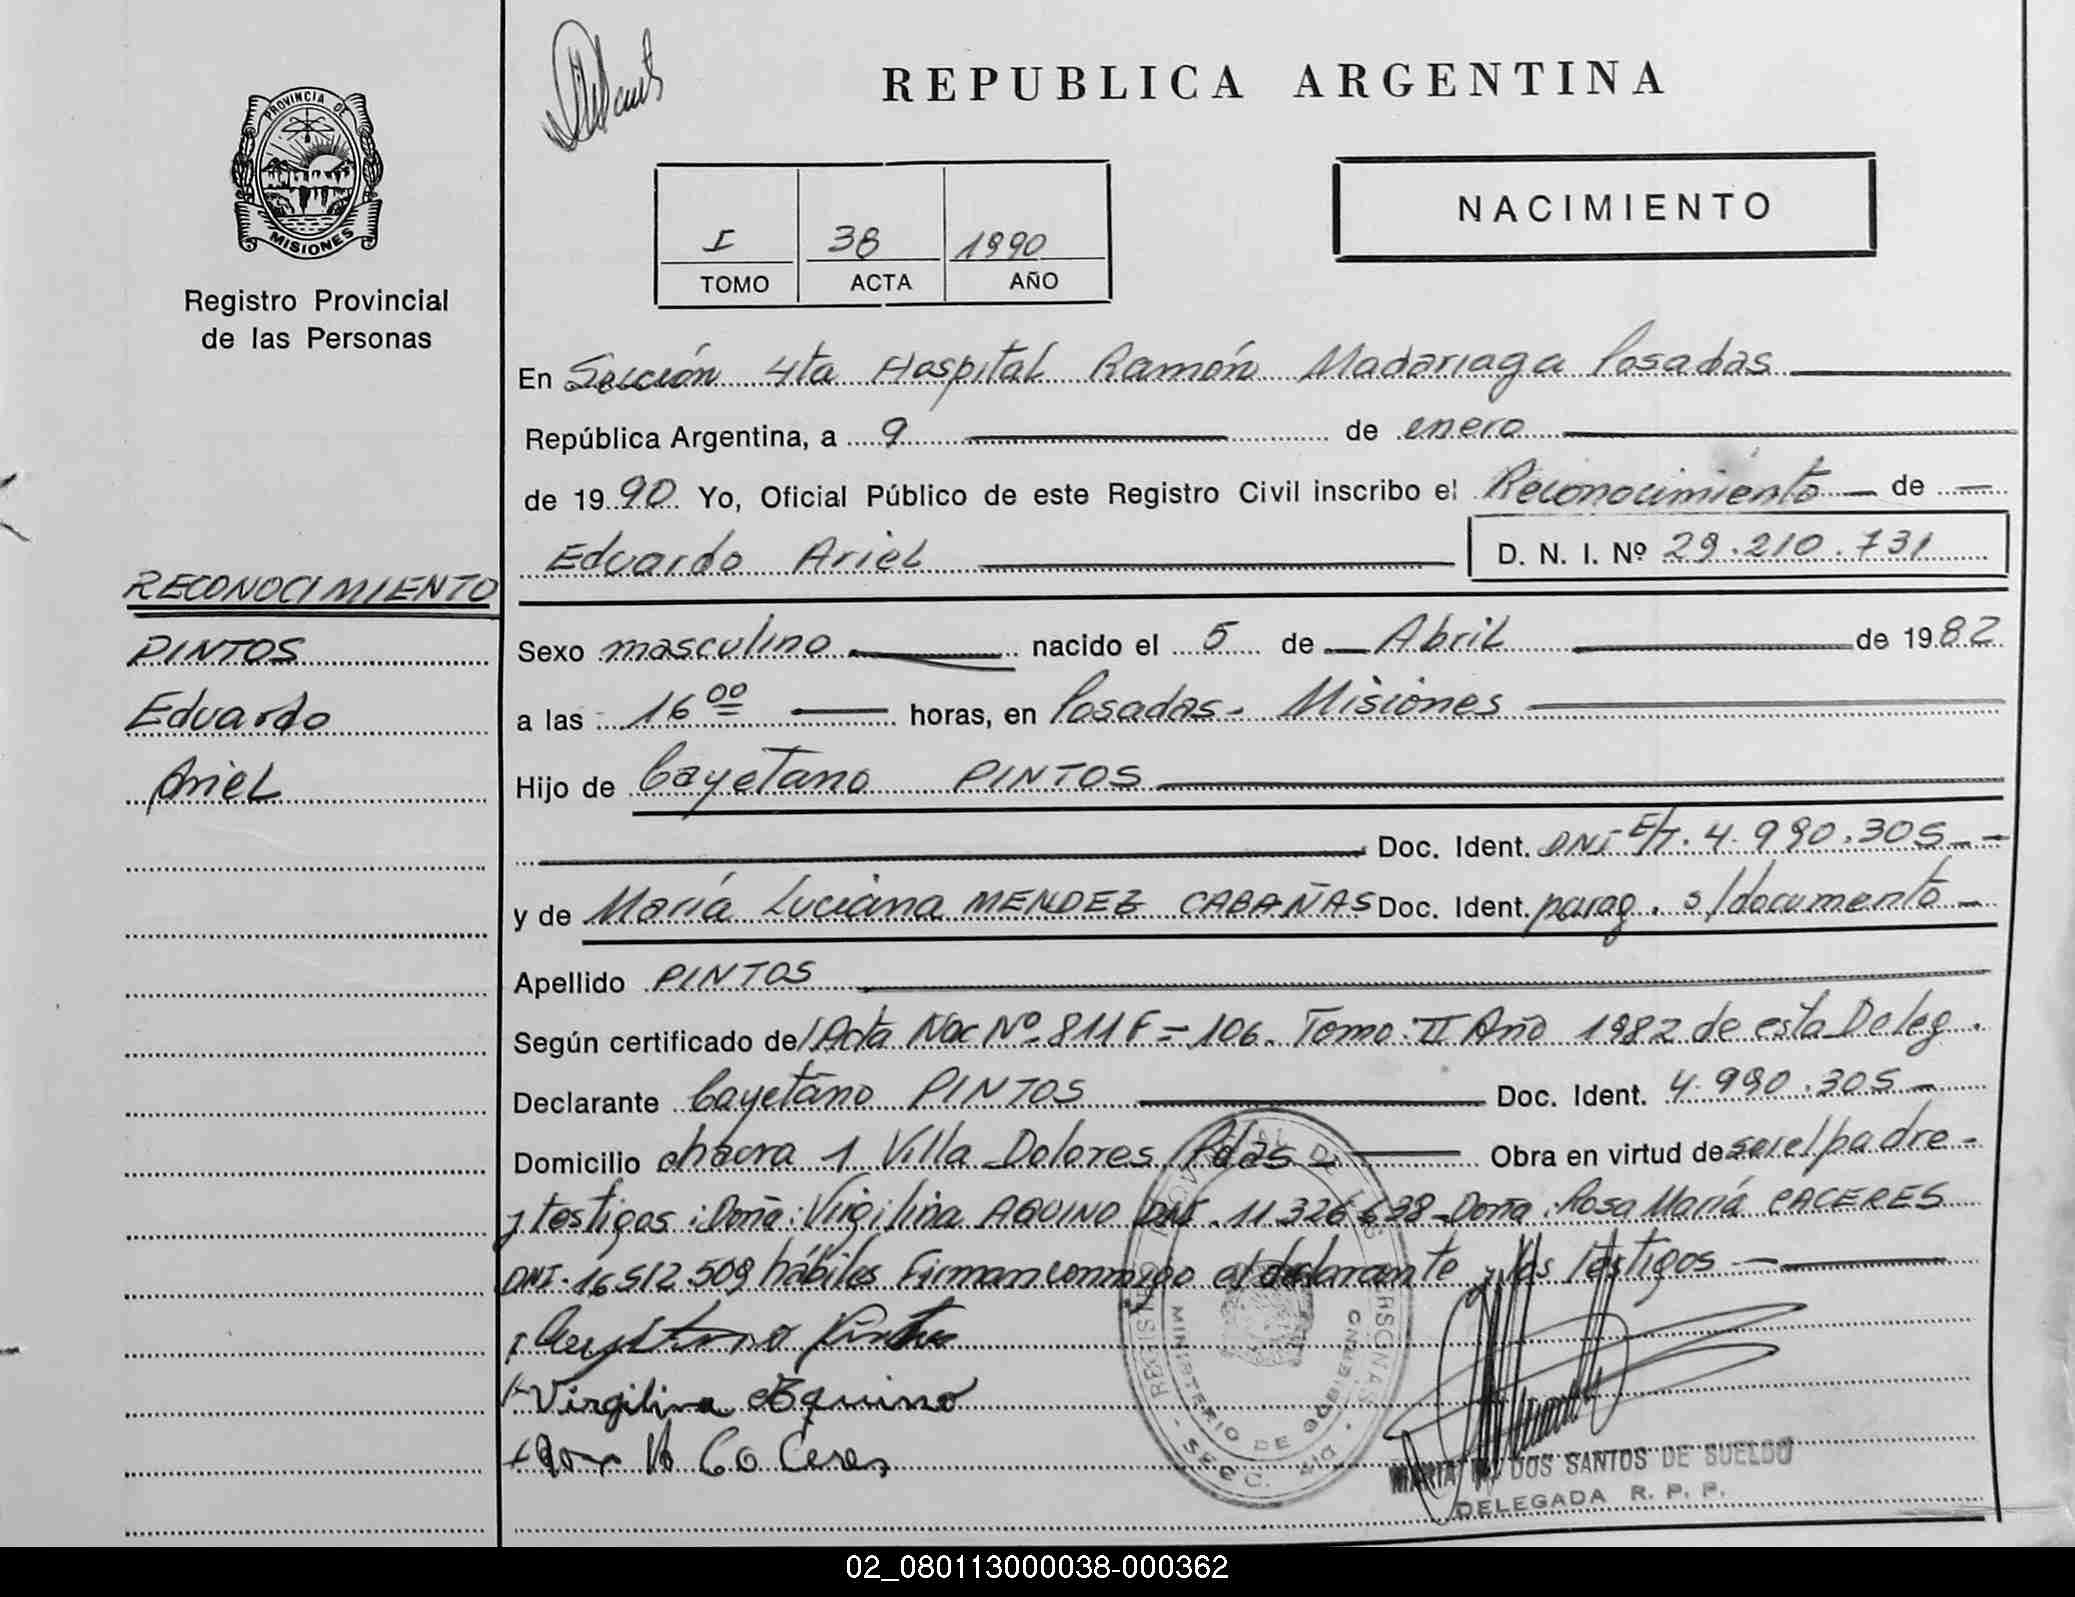 REPUBLICA ARGENTINA
PROVINCIA DE
MISIONES
Registro Provincial
de las Personas
I 38 1990
TOMO ACTA AÑO
NACIMIENTO
En Sección 4ta Hospital Ramón Madariaga Posadas
República Argentina, a 9 de enero
de 1990 Yo, Oficial Público de este Registro Civil inscribo el Reconocimiento de
Eduardo Ariel D. N. I. Nº 29.210.731
RECONOCIMIENTO
PINTOS
Eduardo
Ariel
Sexo masculino nacido el 5 de Abril de 1982
a las 16 00 horas, en Posadas - Misiones
Hijo de Cayetano PINTOS
Doc. Ident. DNI E/T. 4.990.305
y de María Luciana MENDEZ CABAÑAS Doc. Ident. parag. s/documento
Apellido PINTOS
Según certificado de / Acta Nac Nº 811 F= 106. Tomo: II Año 1982 de esta Deleg.
Declarante Cayetano PINTOS Doc. Ident. 4.990.305
Domicilio chacra 1 Villa Dolores Pdas Obra en virtud de ser el padre
y testigos: Doña: Virgilina AQUINO DNI. 11.326.638 - Doña: Rosa María CACERES
DNI. 16.512.509 hábiles Firman conmigo el declarante y los testigos
Cayetano Pintos
Virgilina Aquino
Rosa M Caceres
REGISTRO PROVINCIAL DE LAS PERSONAS
MINISTERIO DE GOBIERNO
SECC.
MARIA DOS SANTOS DE SUELDO
DELEGADA R. P. P.
02_080113000038-000362